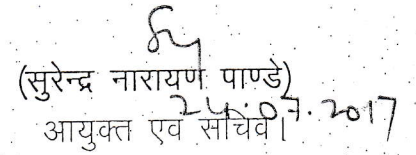 (सुरेन्द्र नारायण पाण्डे)
24.07.2017
आयुक्त एवं सचिव।